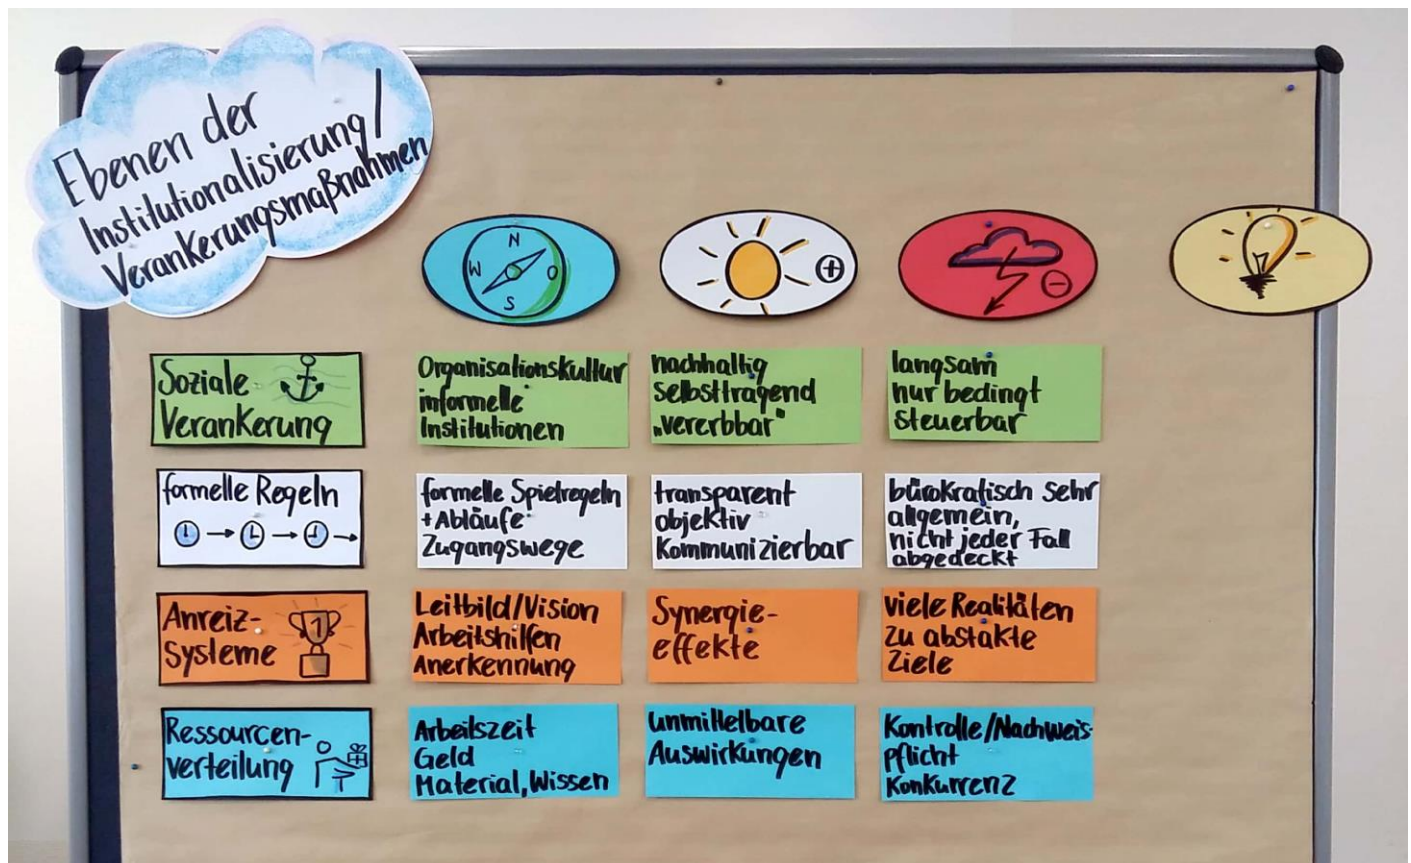 Ebenen der
Institutionalisierung/
Verankerungsmaßnahmen
N
W O
S
+
-
Soziale
Verankerung
Organisationskultur
informelle
Institutionen
nachhaltig
selbsttragend
„vererbbar"
langsam
nur bedingt
steuerbar
formelle Regeln
formelle Spielregeln
+ Abläufe
Zugangswege
transparent
objektiv
kommunizierbar
bürokratisch sehr
allgemein,
nicht jeder Fall
abgedeckt
Anreiz-
systeme
1
Leitbild/Vision
Arbeitshilfen
Anerkennung
Synergie-
effekte
viele Realitäten
zu abstakte
Ziele
Ressourcen-
verteilung
Arbeitszeit
Geld
Material, Wissen
unmittelbare
Auswirkungen
Kontrolle/Nachweis-
pflicht
Konkurrenz